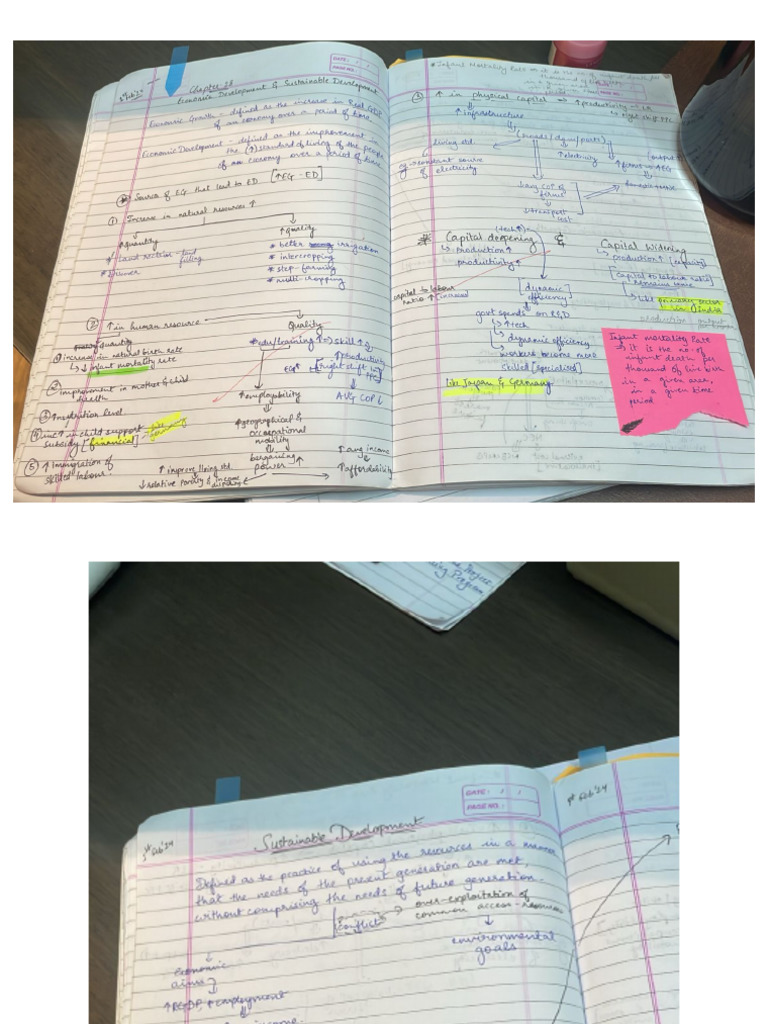 DATE: / /
PAGE NO.:
Chapter-28
Economic Development & Sustainable Development
Economic Growth - defined as the increase in Real GDP
of an economy over a period of time.
Economic Development - defined as the improvement in
the (↑) standard of living of the people
of an economy over a period of time
Source of EG that lead to ED [↑EG - ED]
① Increase in natural resources ↑
Quantity
↑ Quality
* Land
filling
* better irrigation
* intercropping
* step-farming
* multi-cropping
② ↑ in human resource
quantity
Quality
① increase in natural birth rate
↳ ↓ infant mortality rate
② improvement in mother & child
health
③ ↑ nutrition level
④ inc ↑ in child support
subsidy [financial]
germany
⑤ ↑ Immigration of
skilled labour.
* edu/training ↑ ⇒ skill ↑
↑ productivity
right shift in
AVG COP ↓
↑ employability
↑ geographical &
occupational
mobility
bargaining
power ↑
↑ avg income
↑ affordability
↑ improve living std.
↓ relative poverty & income
* Infant Mortality Rate
③ ↑ in physical capital ⇒ ↑ productivity
↑ infrastructure
(roads/dgw/ports)
living std.
eg → constant source
of electricity
↑ electricity
↓ avg COP of
firms
↓ transport
cost
* Capital deepening & Capital Widening
(tech ↑)
↳ production ↑
productivity ↑
capital to labour
ratio ↑ increased
[dynamic
efficiency]
govt spends on R&D
↳ ↑ tech
↳ dynamic efficiency
↳ workers become more
skilled [specialised]
like Japan & Germany
↳ production ↑ (capacity)
[capital to labour ratio]
remains same
↳ like primary sector
in India
Infant mortality Rate
⇒ it is the no. of
infant death per
thousand of live birth
in a given area,
in a given time
period.
DATE: / /
PAGE NO.:
Feb'24
Feb'24
Sustainable Development
Defined as the practice of using the resources in a manner
that the needs of the present generation are met,
without compromising the needs of future generation.
conflict
over-exploitation of
common access-resources
environmental
goals
economic
aims
↑ RGDP, ↑ employment
income